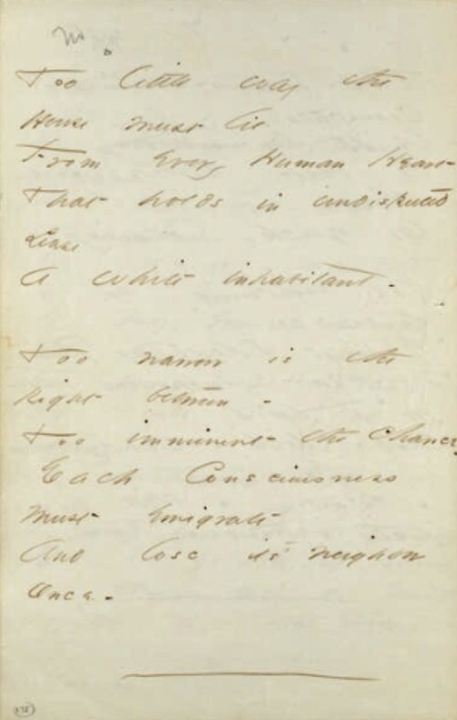 Too little way the
House must lie
From Every Human Heart
That holds in undisputed
Lease
A white inhabitant -
Too narrow is the
Right between -
Too imminent - the chance,
Each Consciousness
Must Emigrate
And lose it's neighbor
Once -